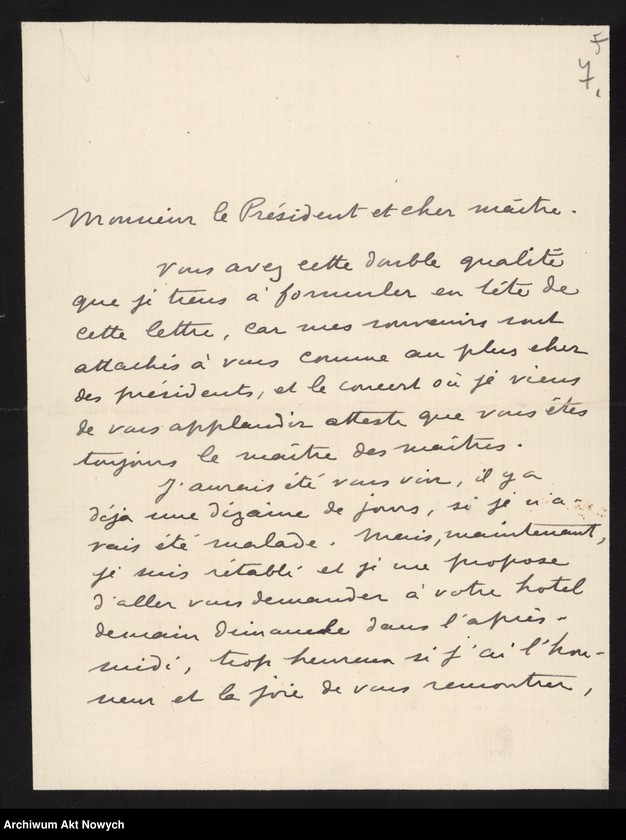 5
7,
Monsieur le Président et cher maître.
Vous avez cette double qualité
que je tiens à formuler en tête de
cette lettre, car mes souvenirs sont
attachés à vous comme au plus cher
des présidents, et le concert où je viens
de vous applaudir atteste que vous êtes
toujours le maître des maîtres.
J'aurais été vous voir, il y a
déjà une dizaine de jours, si je n'a-
vais été malade. Mais, maintenant,
je suis rétabli et je me propose
d'aller vous demander à votre hotel
demain dimanche dans l'après-
midi, trop heureux si j'ai l'hon-
neur et la joie de vous rencontrer,
Archiwum Akt Nowych